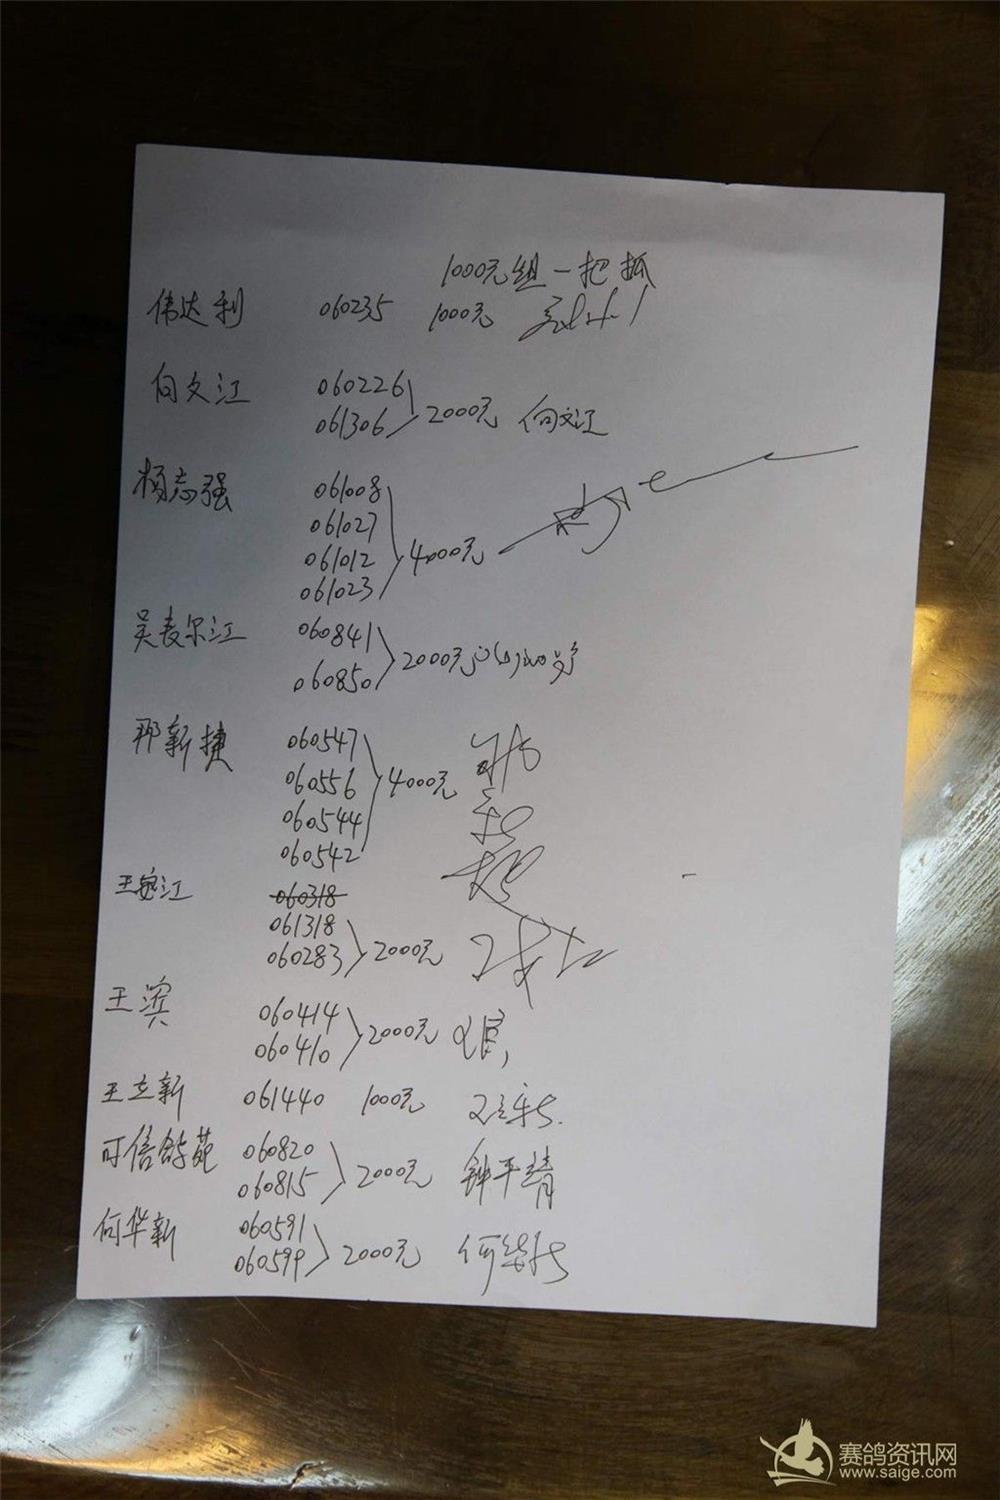 1000元组一把抓
伟达利 060235 1000元
向文江 060226
061306 2000元 向文江
杨志强 061008
061027
061012 4000元
061023
吴表尔江 060841
060850 2000元
那新捷 060547
060556 4000元
060544
060542
王安江 060318
061318
060283 2000元
王滨 060414
060410 2000元
王立新 061440 1000元 王立新
可信鸽苑 060820
060815 2000元 钟平靖
何华新 060591
060599 2000元 何华新
赛鸽资讯网
www.saige.com